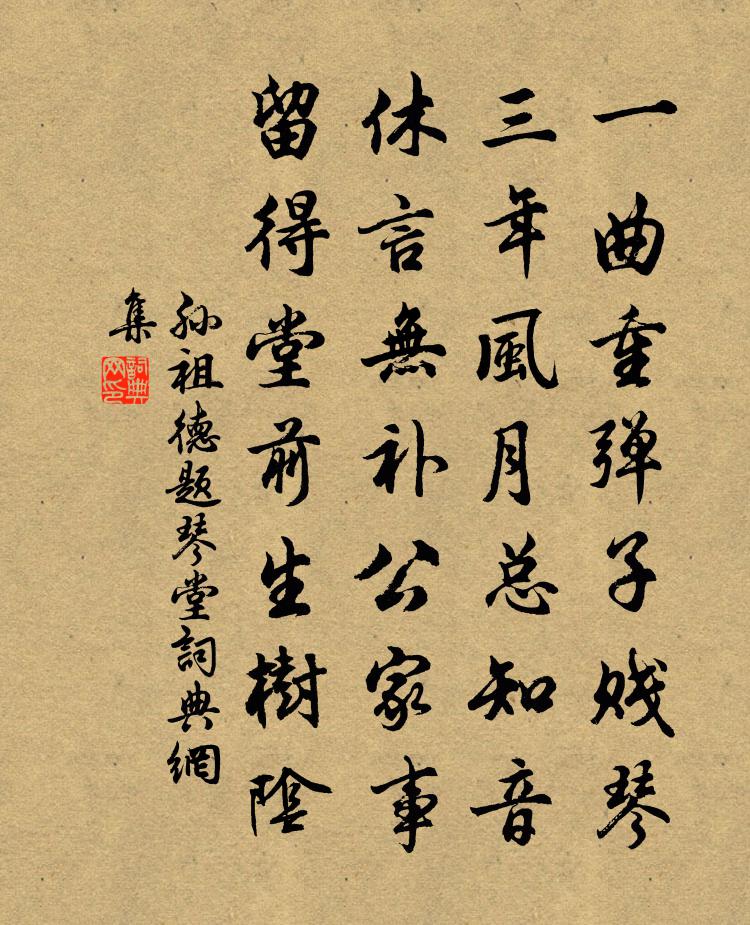 一曲重弹子贱琴
三年風月总知音
休言無补公家事
留得堂前生樹陰
孙祖德题琴堂詞典網
集
詞典
网印